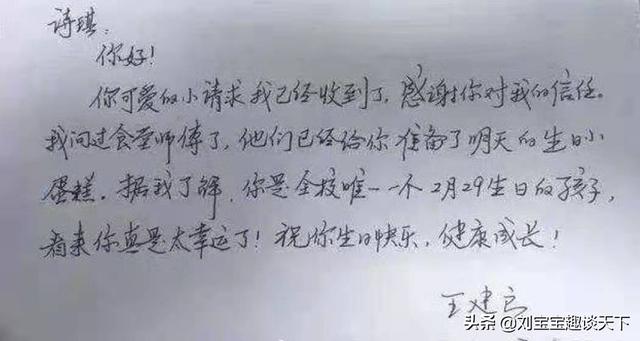 诗琪：
你好！
你可爱的小请求我已经收到了，感谢你对我的信任。
我问过食堂师傅了，他们已经给你准备了明天的生日小
蛋糕。据我了解，你是全校唯一一个2月29生日的孩子，
看来你真是太幸运了！祝你生日快乐，健康成长！
王建
头条 @刘宝宝趣谈天下